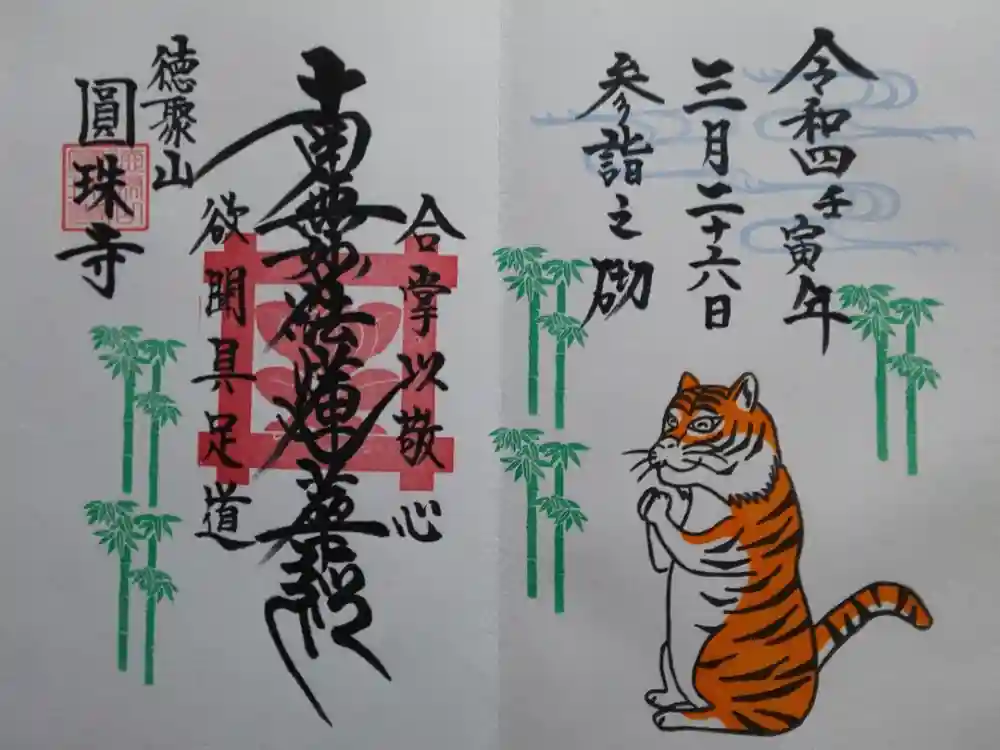 令和四壬寅年
三月二十六日
参詣之砌
合掌以敬心
南無妙法蓮華経
欲聞具足道
徳聚山
圓珠寺